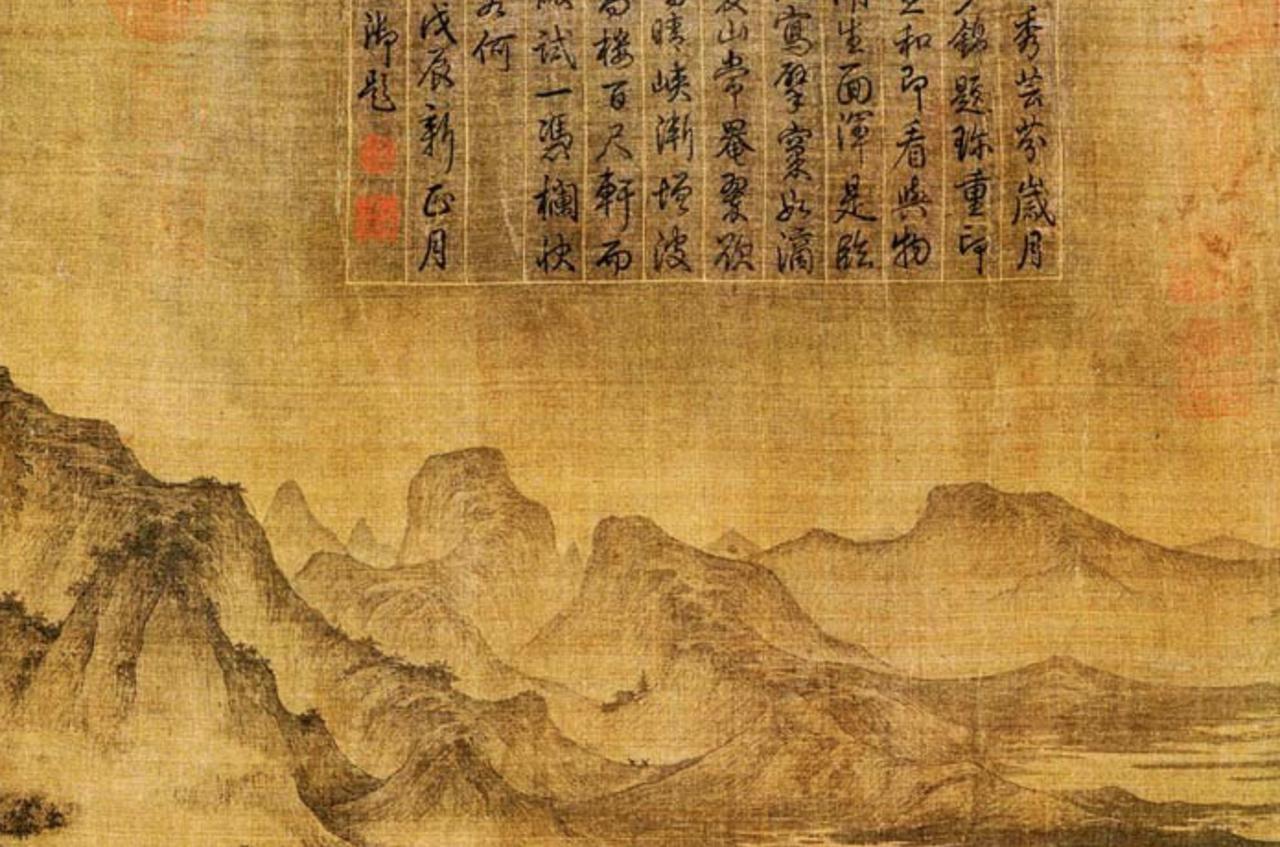 秀芸芬歲月
錦題珎重印
和即看與物
生面渾是臨
寫擘窠如滴
山常罨翠欲
晴峽漸增波
楼百尺軒而
試一憑欄快
何
戊辰新正月
御題